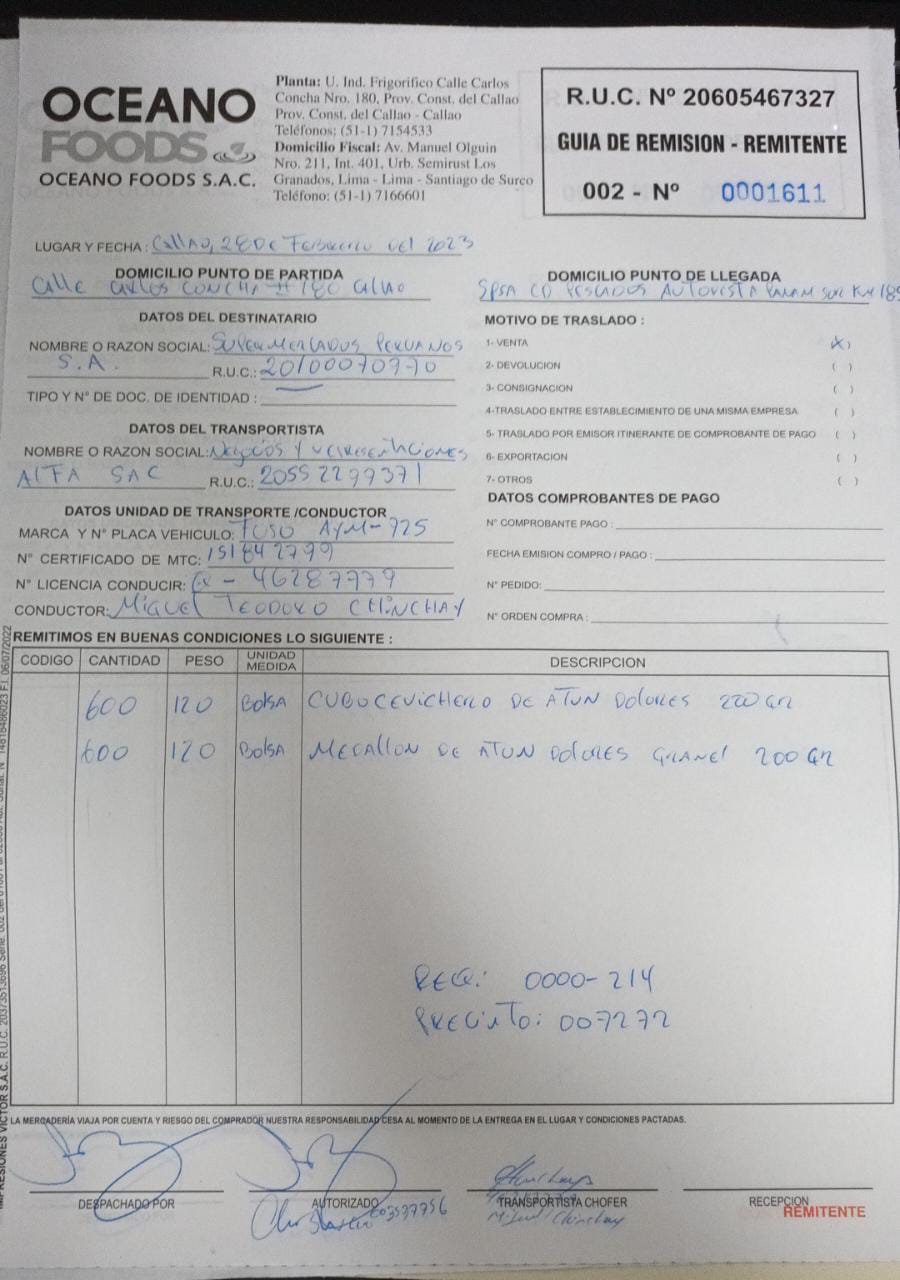 OCEANO
FOODS
OCEANO FOODS S.A.C.
Planta: U. Ind. Frigorifico Calle Carlos
Concha Nro. 180, Prov. Const. del Callao
Prov. Const. del Callao - Callao
Teléfonos: (51-1) 7154533
Domicilio Fiscal: Av. Manuel Olguin
Nro. 211, Int. 401, Urb. Semirust Los
Granados, Lima - Lima - Santiago de Surco
Teléfono: (51-1) 7166601
R.U.C. Nº 20605467327
GUIA DE REMISION - REMITENTE
002 - Nº 0001611
LUGAR Y FECHA : Callao, 28 De Febrero del 2023
DOMICILIO PUNTO DE PARTIDA
Calle Carlos Concha # 180 Callao
DOMICILIO PUNTO DE LLEGADA
SPSA CD PESCADOS AUTOPISTA PANAM SUR KM
DATOS DEL DESTINATARIO
NOMBRE O RAZON SOCIAL: SUPERMERCADOS PERUANOS
S.A. R.U.C.: 20100070970
TIPO Y N° DE DOC. DE IDENTIDAD :
DATOS DEL TRANSPORTISTA
NOMBRE O RAZON SOCIAL: Negocios y representaciones
ALFA SAC R.U.C.: 20552299371
DATOS UNIDAD DE TRANSPORTE /CONDUCTOR
MARCA Y N° PLACA VEHICULO: FUSO AYM-725
N° CERTIFICADO DE MTC: 151842799
N° LICENCIA CONDUCIR: Q - 46287779
CONDUCTOR: Miguel TEODORO CHINCHAY
MOTIVO DE TRASLADO :
1- VENTA (X)
2- DEVOLUCION ( )
3- CONSIGNACION ( )
4-TRASLADO ENTRE ESTABLECIMIENTO DE UNA MISMA EMPRESA ( )
5- TRASLADO POR EMISOR ITINERANTE DE COMPROBANTE DE PAGO ( )
6- EXPORTACION ( )
7- OTROS ( )
DATOS COMPROBANTES DE PAGO
N° COMPROBANTE PAGO :
FECHA EMISION COMPRO / PAGO :
N° PEDIDO:
N° ORDEN COMPRA :
REMITIMOS EN BUENAS CONDICIONES LO SIGUIENTE :
CODIGO CANTIDAD PESO UNIDAD MEDIDA DESCRIPCION
600 120 Bolsa CUBO CEVICHERO DE ATUN DOLORES 220 GR
600 120 Bolsa MEDALLON DE ATUN DOLORES GRANEL 200 GR
REQ.: 0000-214
PRECINTO: 007272
LA MERCADERÍA VIAJA POR CUENTA Y RIESGO DEL COMPRADOR NUESTRA RESPONSABILIDAD CESA AL MOMENTO DE LA ENTREGA EN EL LUGAR Y CONDICIONES PACTADAS.
DESPACHADO POR
AUTORIZADO
TRANSPORTISTA CHOFER
Miguel Chinchay
RECEPCION
REMITENTE